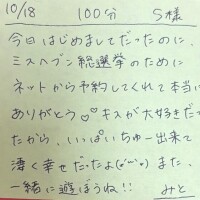 10/18 100分 S様
今日はじめましてだったのに、
ミスヘブン総選挙のために
ネットから予約してくれて本当に
ありがとう♡♡キスが大好きだっ
たから、いっぱいちゅー出来て
凄く幸せだったよ(●´ω`●)また、
一緒に遊ぼうね!! みと